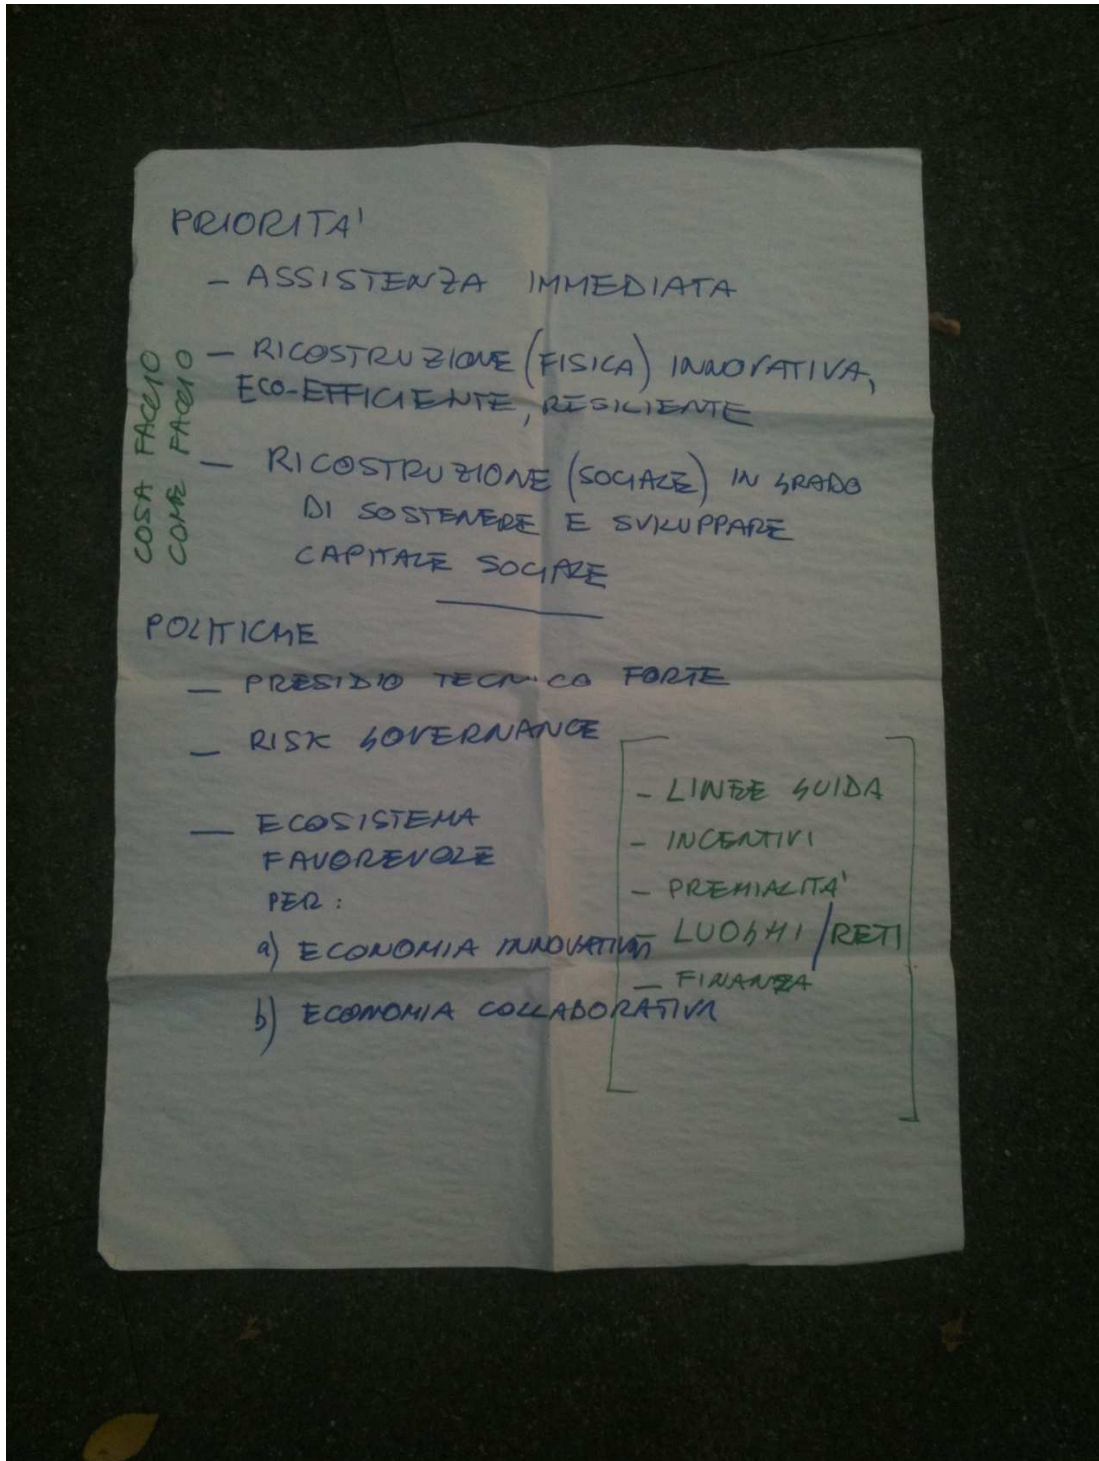 PRIORITA'
- ASSISTENZA IMMEDIATA
- RICOSTRUZIONE (FISICA) INNOVATIVA,
ECO-EFFICIENTE, RESILIENTE
- RICOSTRUZIONE (SOCIALE) IN GRADO
DI SOSTENERE E SVILUPPARE
CAPITALE SOCIALE
COSA FACCIO
COME FACCIO
POLITICHE
- PRESIDIO TECNICO FORTE
- RISK GOVERNANCE
- ECOSISTEMA
FAVOREVOLE
PER:
a) ECONOMIA INNOVATIVA
b) ECONOMIA COLLABORATIVA
- LINEE GUIDA
- INCENTIVI
- PREMIALITA'
- LUOGHI / RETI
- FINANZA